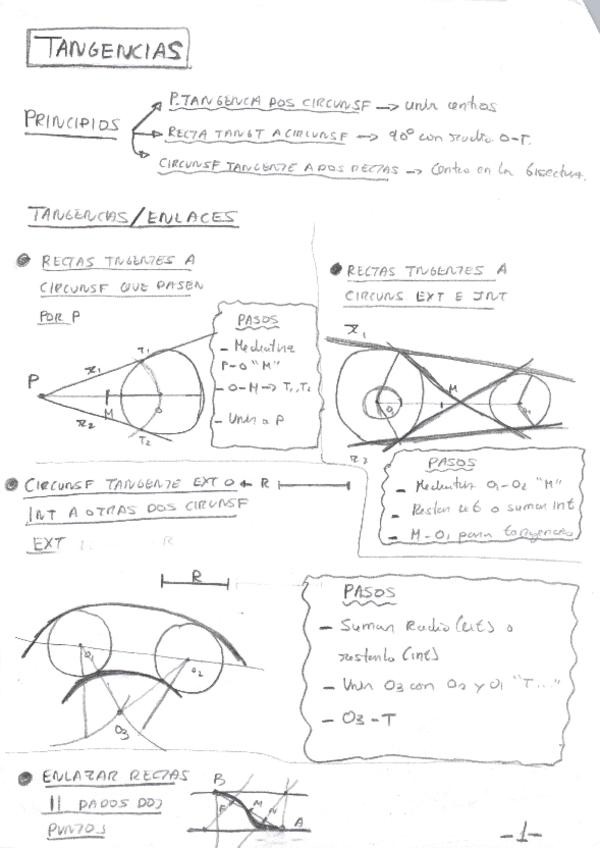 TANGENCIAS
PRINCIPIOS
P.TANGENCIA DOS CIRCUNSF → unir centros
RECTA TANGT A CIRCUNSF → 90° con radio O-T.
CIRCUNSF TANGENTE A DOS RECTAS → Centro en la bisectriz.
TANGENCIAS/ENLACES
RECTAS TNGENTES A
CIRCUNSF QUE PASEN
POR P
PASOS
- Mediatriz
P-O "M"
- O-M → T1, T2
- Unir a P
P
T1
r1
M
O
r2
T2
RECTAS TNGENTES A
CIRCUNS EXT E INT
r1
M
O1
O2
r2
PASOS
- Mediatriz O1-O2 "M"
- Restar ext o sumar int
- M-O1 para tangencias
CIRCUNSF TANGENTE EXT O ← R
INT A OTRAS DOS CIRUNSF
EXT
R
O1
O2
O3
PASOS
- Sumar Radio (ext) o
restarlo (int)
- Unir O3 con O2 y O1 "T..."
- O3-T
ENLAZAR RECTAS
|| DADOS DOS
PUNTOS
B
M
N
A
-1-